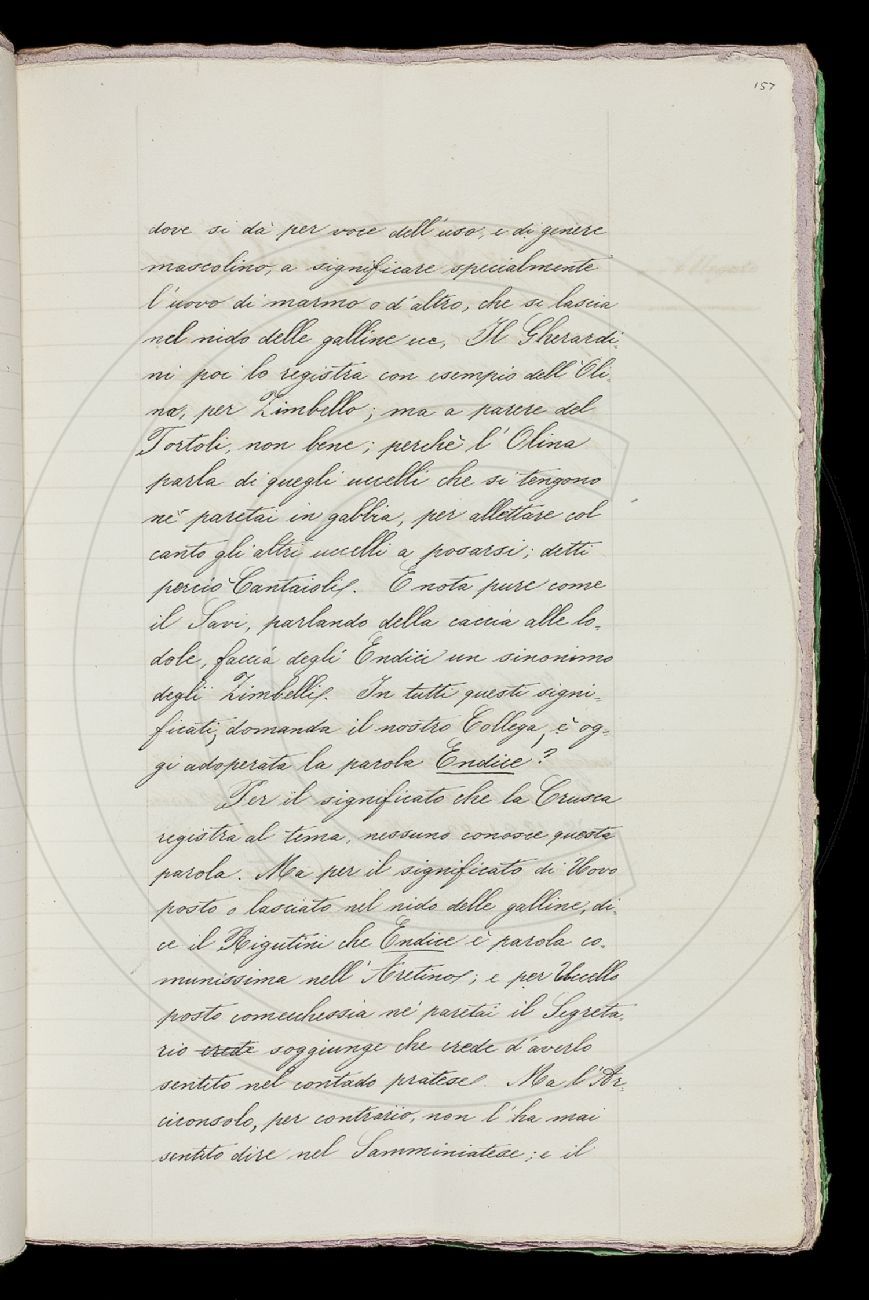 157
dove si dà per voce dell'uso, e di genere
mascolino, a significare specialmente
l'uovo di marmo o d'altro, che si lascia
nel nido delle galline ec. Il Gherardi-
ni poi lo registra con esempio dell'Oli-
na, per Zimbello; ma a parere del
Tortoli, non bene; perchè l'Olina
parla di quegli uccelli che si tengono
ne' paretai in gabbia, per allettare col
canto gli altri uccelli a posarsi; detti
perciò Cantaioli. È nota pure come
il Savi, parlando della caccia alle lo-
dole, faccia degli Endici un sinonimo
degli Zimbelli. In tutti questi signi-
ficati, domanda il nostro Collega, è og-
gi adoperata la parola Endice?
Per il significato che la Crusca
registra al tema, nessuno conosce questa
parola. Ma per il significato di Uovo
posto o lasciato nel nido delle galline, di-
ce il Rigutini che Endice è parola co-
munissima nell'Aretino; e per Uccello
posto comecchessia ne' paretai il Segreta-
rio crede soggiunge che crede d'averlo
sentito nel contado pratese. Ma l'Ar-
ciconsolo, per contrario, non l'ha mai
sentito dire nel Samminiatese; e il